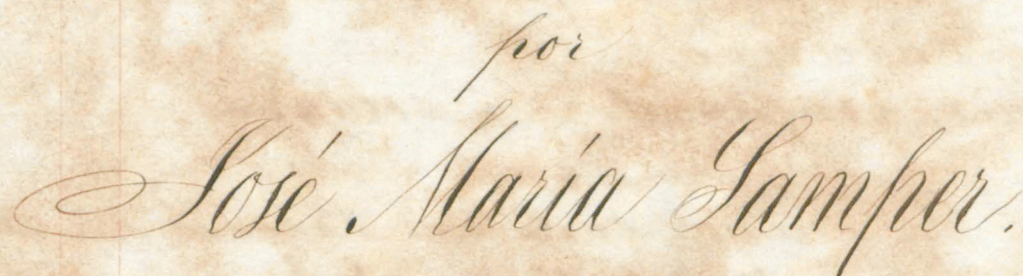 por
José María Samper.